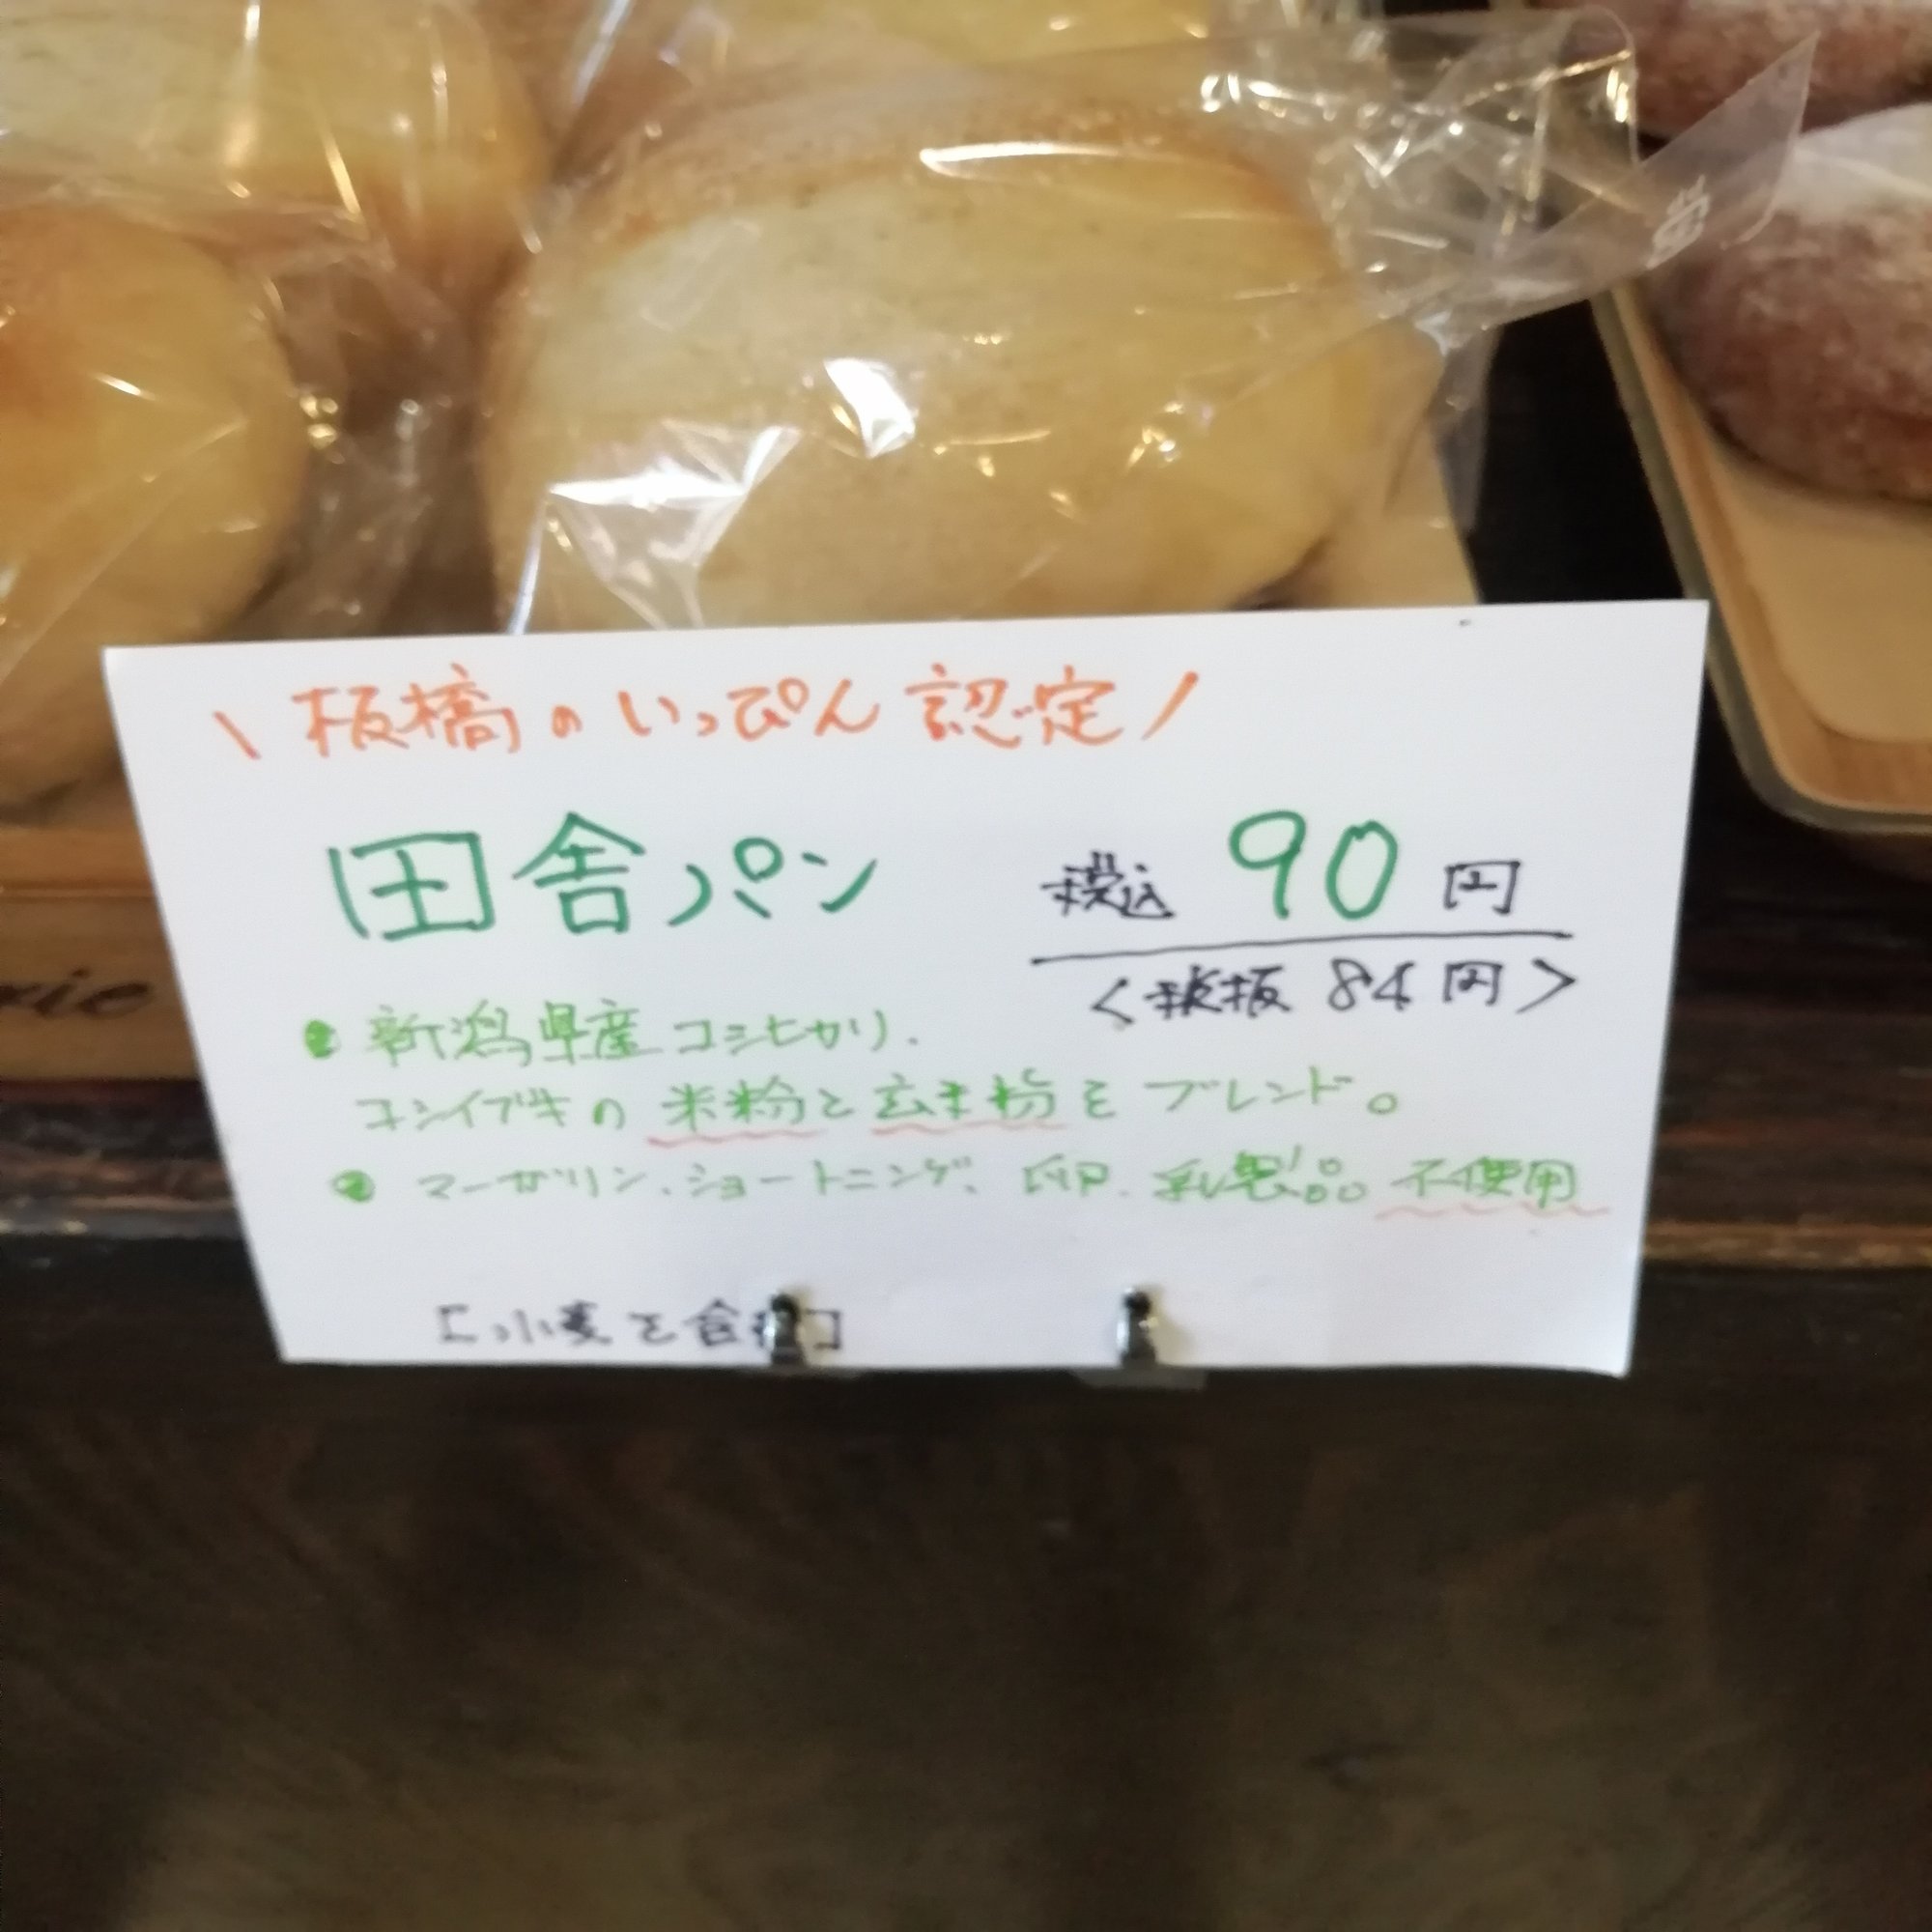 \ 板橋のいっぴん認定 /
田舎パン 税込 90円
<税抜 84円>
● 新潟県産コシヒカリ、
コシイブキの米粉と玄米粉をブレンド。
● マーガリン、ショートニング、卵、乳製品 不使用
[小麦を含む]
rie